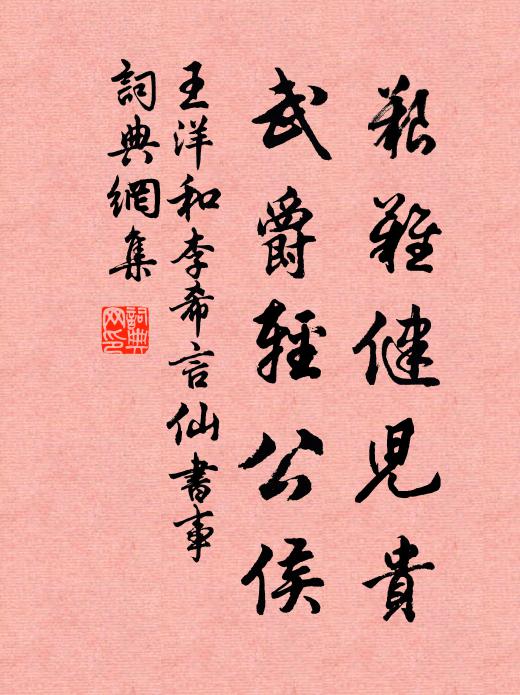 艱難健兒貴
武爵輕公侯
王洋和李希言仙書事
詞典網集
詞典网印